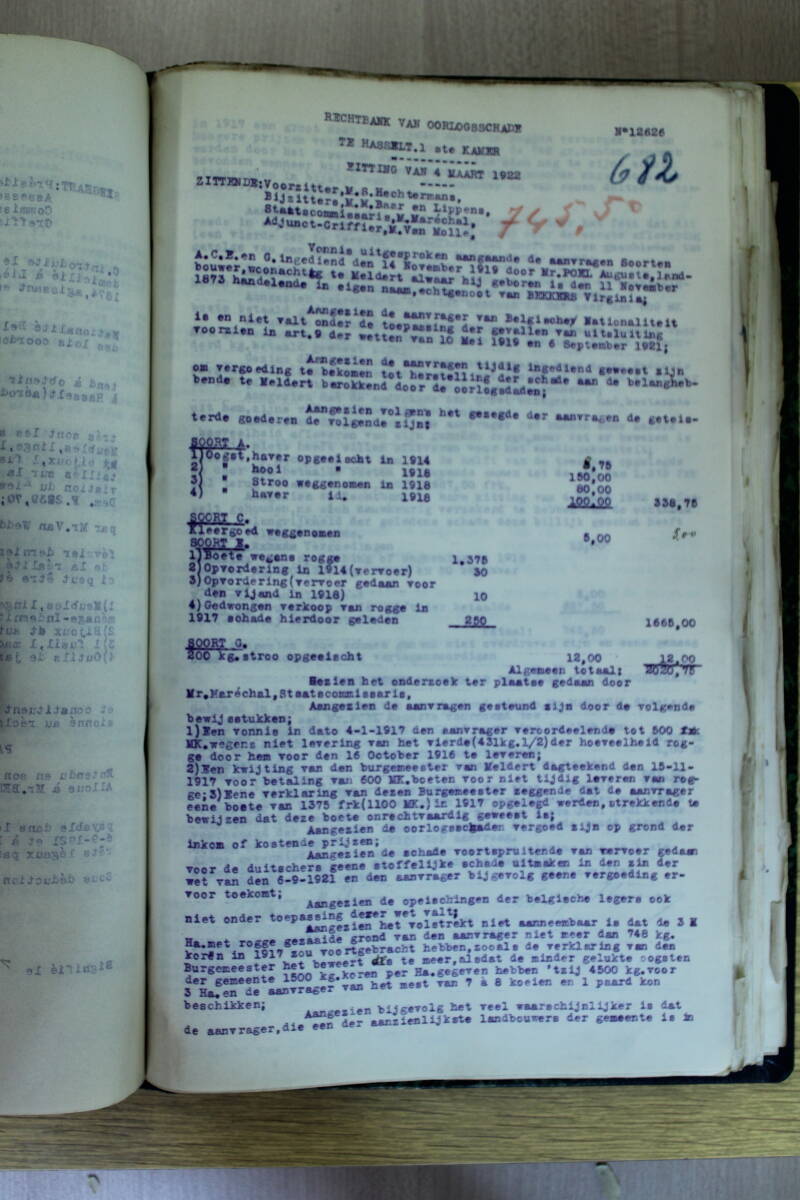 RECHTBANK VAN OORLOGSSCHADE
N°12626
TE HASSELT.1 ste KAMER
ZITTING VAN 4 MAART 1922
682
ZITTENDE:Voorzitter,M.S.Hechtermans,
Bijzitters,M.M.Baar en Lippens,
Staatscommissaris,M.Maréchal,
Adjunct-Griffier,M.Van Molle,
745,50
Vonnis uitgesproken aangaande de aanvragen Soorten
A.C.E.en G.ingediend den 14 November 1919 door Mr.POEL Auguste,land-
bouwer,woonachtig te Meldert alwaar hij geboren is den 11 November
1873 handelende in eigen naam,echtgenoot van BEKKERS Virginia;
Aangezien de aanvrager van Belgische Nationaliteit
is en niet valt onder de toepassing der gevallen van uitsluiting
voorzien in art.9 der wetten van 10 Mei 1919 en 6 September 1921;
Aangezien de aanvragen tijdig ingediend geweest zijn
om vergoeding te bekomen tot herstelling der schade aan de belangheb-
bende te Meldert berokkend door de oorlogsdaden;
Aangezien volgens het gezegde der aanvragen de geteis-
terde goederen de volgende zijn:
SOORT A.
1)Oogst,haver opgeeischt in 1914 8,75
2) " hooi " 1918 150,00
3) " Stroo weggenomen in 1918 80,00
4) " haver id. 1918 100.00 338,75
SOORT C.
Kleergoed weggenomen 5,00
SOORT E.
1)Boete wegens rogge 1,375
2)Opvordering in 1914(vervoer) 30
3)Opvordering(vervoer gedaan voor
den vijand in 1918) 10
4)Gedwongen verkoop van rogge in
1917 schade hierdoor geleden 250 1665,00
SOORT G.
200 kg.stroo opgeeischt 12,00 12,00
Algemeen totaal: 2020,75
Gezien het onderzoek ter plaatse gedaan door
Mr.Maréchal,Staatscommissaris,
Aangezien de aanvragen gesteund zijn door de volgende
bewijsstukken;
1)Een vonnis in dato 4-1-1917 den aanvrager veroordeelende tot 500
MK.wegens niet levering van het vierde(431kg.1/2)der hoeveelheid rog-
ge door hem voor den 16 October 1916 te leveren;
2)Een kwijting van den burgemeester van Meldert dagteekend den 15-11-
1917 voor betaling van 600 MK.boeten voor niet tijdig leveren van rog-
ge;3)Eene verklaring van dezen Burgemeester zeggende dat de aanvrager
eene boete van 1375 frk(1100 MK.)in 1917 opgelegd werden,strekkende te
bewijzen dat deze boete onrechtvaardig geweest is;
Aangezien de oorlogsschaden vergoed zijn op grond der
inkom of kostende prijzen;
Aangezien de schade voortspruitende van vervoer gedaan
voor de duitschers geene stoffelijke schade uitmaken in den zin der
wet van den 6-9-1921 en den aanvrager bijgevolg geene vergoeding er-
voor toekomt;
Aangezien de opeischingen der belgische legers ook
niet onder toepassing dezer wet valt;
Aangezien het volstrekt niet aanneembaar is dat de 3 H
Ha.met rogge gezaaide grond van den aanvrager niet meer dan 748 kg.
koren in 1917 zou voortgebracht hebben,zooals de verklaring van den
Burgemeester het beweert des te meer,alsdat de minder gelukte oogsten
der gemeente 1500 kg.koren per Ha.gegeven hebben 'tzij 4500 kg.voor
3 Ha.en de aanvrager van het mest van 7 à 8 koeien en 1 paard kon
beschikken;
Aangezien bijgevolg het veel waarschijnlijker is dat
de aanvrager,die een der aanzienlijkste landbouwers der gemeente is in